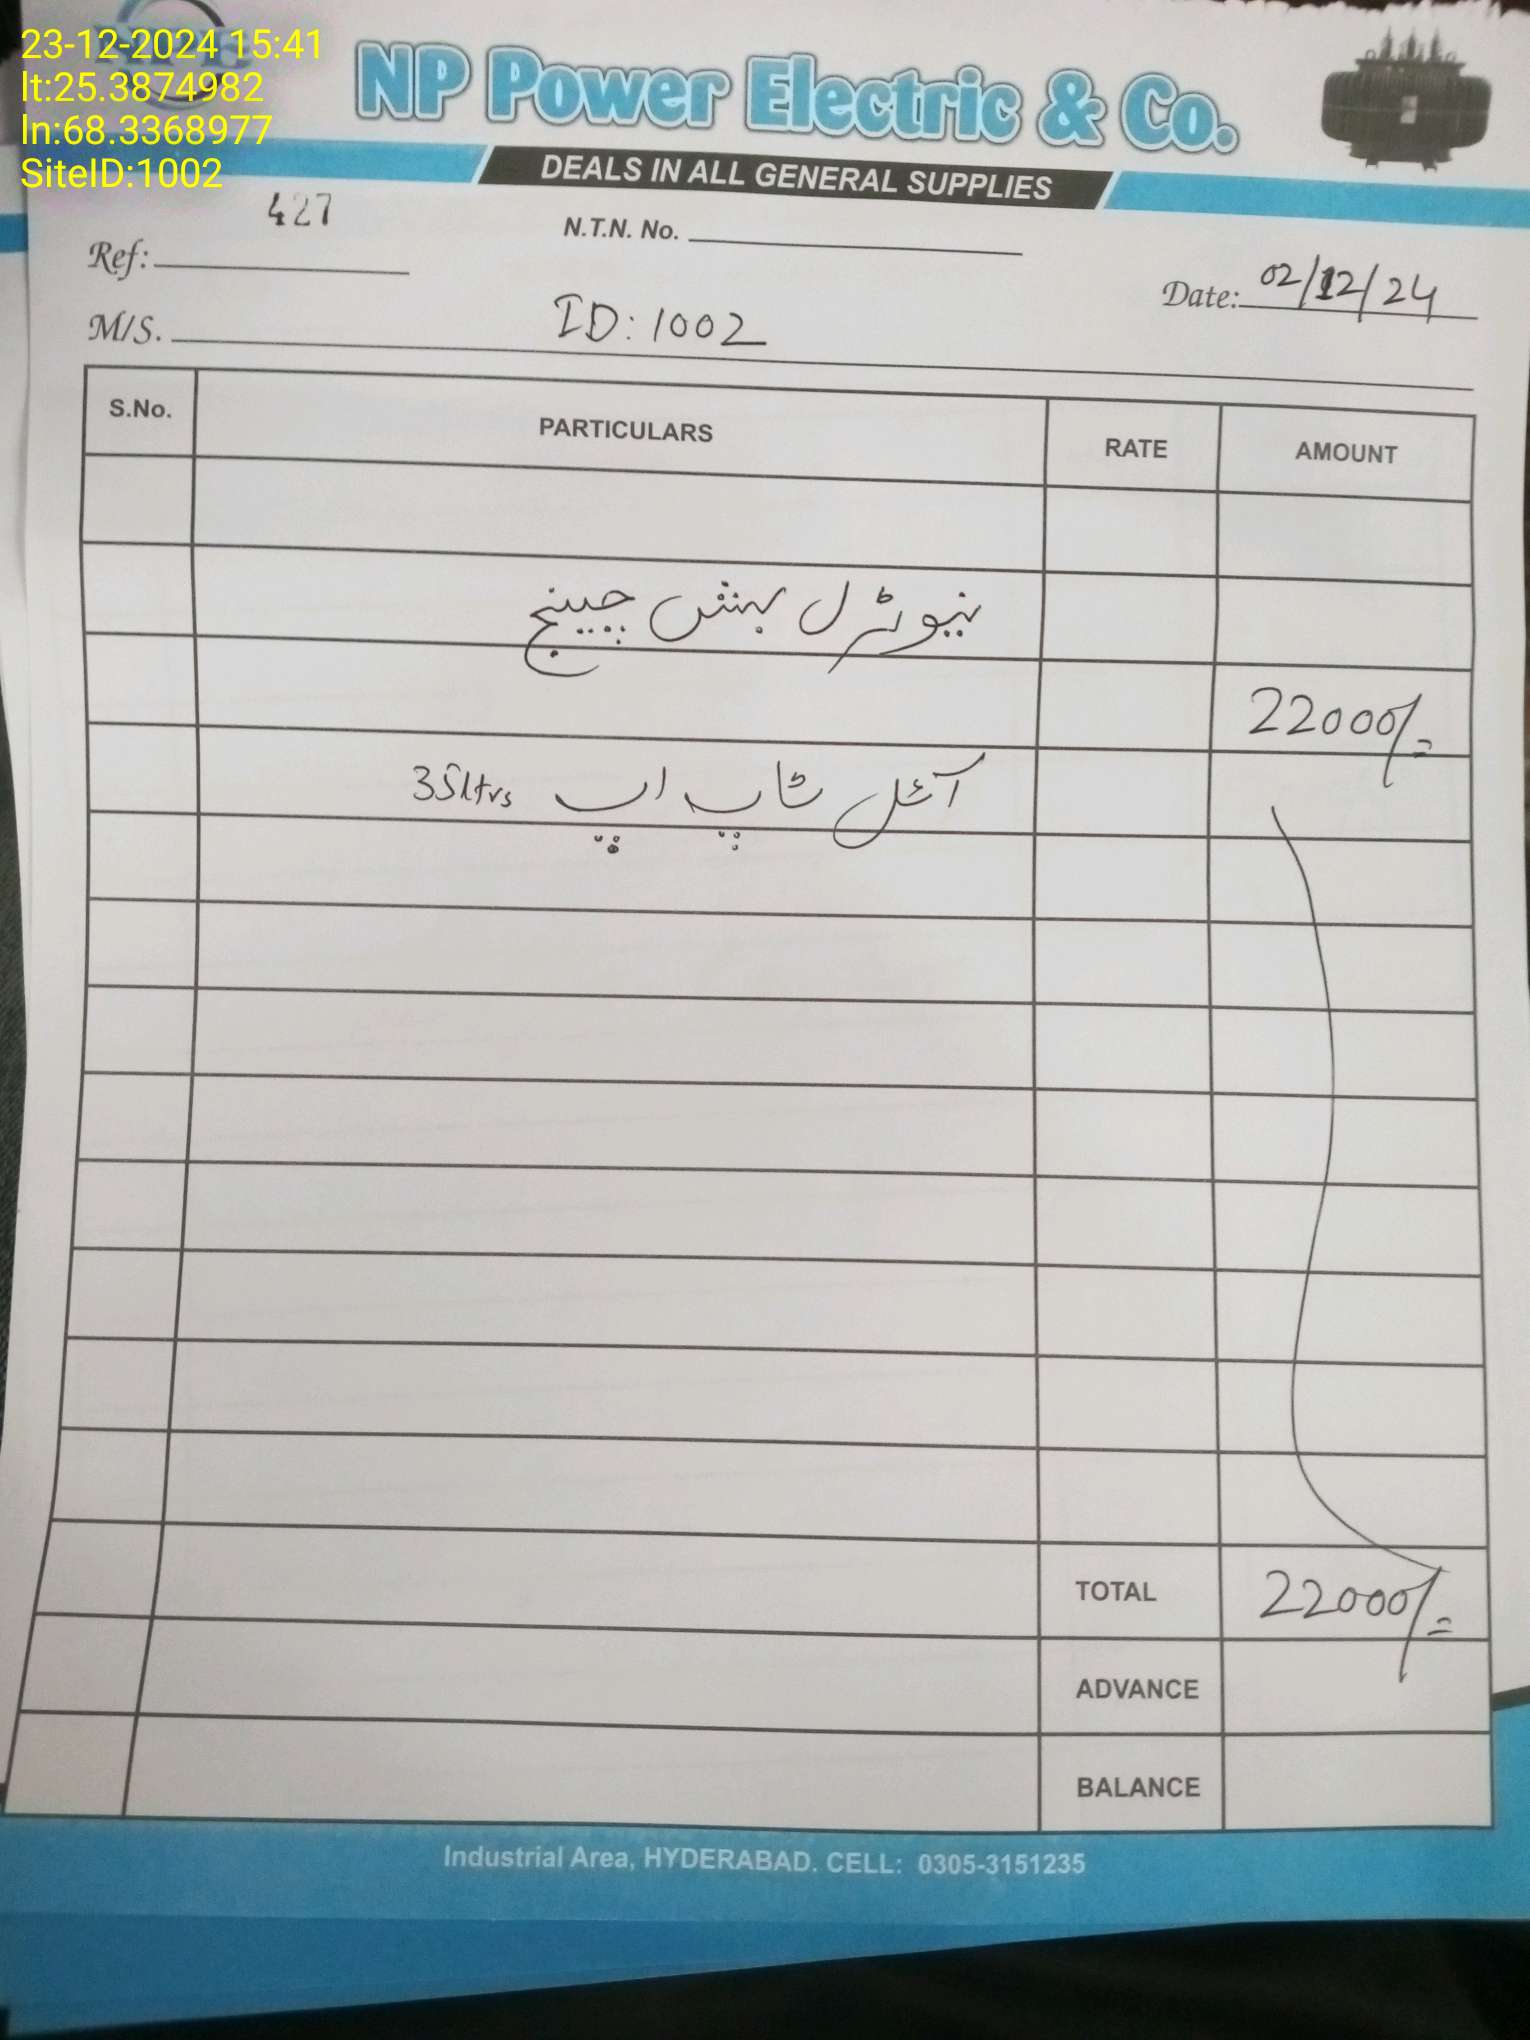 23-12-2024 15:41
lt:25.3874982
ln:68.3368977
SiteID:1002
NP Power Electric & Co.
DEALS IN ALL GENERAL SUPPLIES
427
Ref:
N.T.N. No.
Date: 02/12/24
M/S. ID: 1002
S.No. PARTICULARS RATE AMOUNT
نیوٹرل بشش چینج
22000/=
آئل ٹاپ اپ 35ltrs
TOTAL 22000/=
ADVANCE
BALANCE
Industrial Area, HYDERABAD. CELL: 0305-3151235